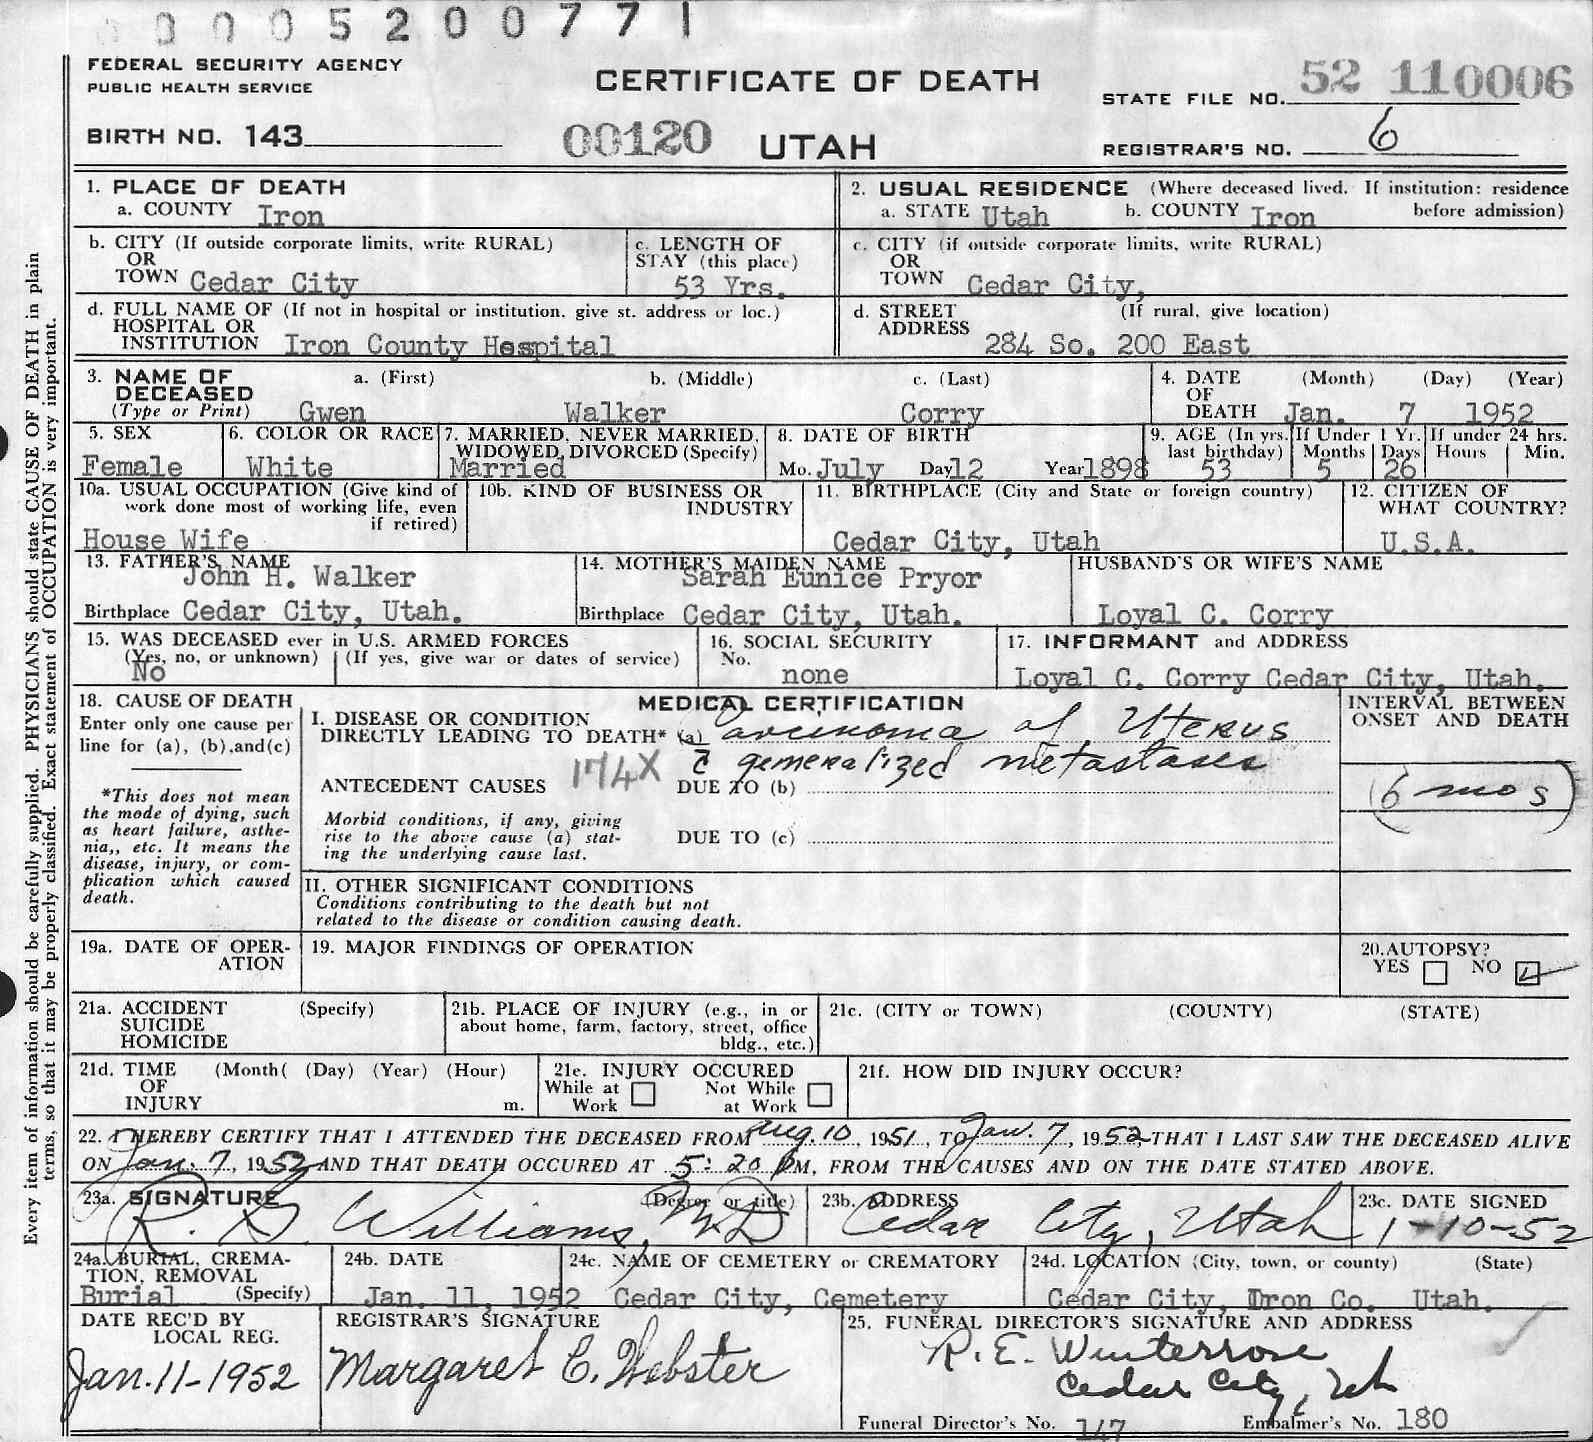 0 0 0 5 2 0 0 7 7 1
FEDERAL SECURITY AGENCY
PUBLIC HEALTH SERVICE
CERTIFICATE OF DEATH
STATE FILE NO. 52 110006
BIRTH NO. 143
00120
UTAH
REGISTRAR'S NO. 6
1. PLACE OF DEATH
a. COUNTY Iron
2. USUAL RESIDENCE (Where deceased lived. If institution: residence before admission)
a. STATE Utah b. COUNTY Iron
b. CITY (If outside corporate limits, write RURAL)
OR
TOWN Cedar City
c. LENGTH OF
STAY (this place)
53 Yrs.
c. CITY (if outside corporate limits, write RURAL)
OR
TOWN Cedar City,
d. FULL NAME OF (If not in hospital or institution. give st. address or loc.)
HOSPITAL OR
INSTITUTION Iron County Hospital
d. STREET (If rural, give location)
ADDRESS 284 So. 200 East
3. NAME OF a. (First) b. (Middle) c. (Last)
DECEASED
(Type or Print) Gwen Walker Corry
4. DATE (Month) (Day) (Year)
OF
DEATH Jan. 7 1952
5. SEX
Female
6. COLOR OR RACE
White
7. MARRIED, NEVER MARRIED,
WIDOWED, DIVORCED (Specify)
Married
8. DATE OF BIRTH
Mo. July Day 12 Year 1898
9. AGE (In yrs.
last birthday)
53
If Under 1 Yr.
Months Days
5 26
If under 24 hrs.
Hours Min.
10a. USUAL OCCUPATION (Give kind of
work done most of working life, even
if retired)
House Wife
10b. KIND OF BUSINESS OR
INDUSTRY
11. BIRTHPLACE (City and State or foreign country)
Cedar City, Utah
12. CITIZEN OF
WHAT COUNTRY?
U.S.A.
13. FATHER'S NAME
John H. Walker
Birthplace Cedar City, Utah.
14. MOTHER'S MAIDEN NAME
Sarah Eunice Pryor
Birthplace Cedar City, Utah.
HUSBAND'S OR WIFE'S NAME
Loyal C. Corry
15. WAS DECEASED ever in U.S. ARMED FORCES
(Yes, no, or unknown) (If yes, give war or dates of service)
No
16. SOCIAL SECURITY
No.
none
17. INFORMANT and ADDRESS
Loyal C. Corry Cedar City, Utah.
18. CAUSE OF DEATH
Enter only one cause per
line for (a), (b), and (c)
*This does not mean
the mode of dying, such
as heart failure, asthe-
nia,, etc. It means the
disease, injury, or com-
plication which caused
death.
MEDICAL CERTIFICATION
I. DISEASE OR CONDITION
DIRECTLY LEADING TO DEATH* (a) Carcinoma of Uterus
c̄ generalized metastases
ANTECEDENT CAUSES 174X DUE TO (b)
Morbid conditions, if any, giving
rise to the above cause (a) stat-
ing the underlying cause last.
DUE TO (c)
INTERVAL BETWEEN
ONSET AND DEATH
(6 mos)
II. OTHER SIGNIFICANT CONDITIONS
Conditions contributing to the death but not
related to the disease or condition causing death.
19a. DATE OF OPER-
ATION
19. MAJOR FINDINGS OF OPERATION
20. AUTOPSY?
YES NO
21a. ACCIDENT (Specify)
SUICIDE
HOMICIDE
21b. PLACE OF INJURY (e.g., in or
about home, farm, factory, street, office
bldg., etc.)
21c. (CITY or TOWN) (COUNTY) (STATE)
21d. TIME (Month( (Day) (Year) (Hour)
OF
INJURY m.
21e. INJURY OCCURED
While at Work Not While at Work
21f. HOW DID INJURY OCCUR?
22. I HEREBY CERTIFY THAT I ATTENDED THE DECEASED FROM Aug. 10, 1951, TO Jan. 7, 1952, THAT I LAST SAW THE DECEASED ALIVE
ON Jan. 7, 1952 AND THAT DEATH OCCURED AT 5:20 PM, FROM THE CAUSES AND ON THE DATE STATED ABOVE.
23a. SIGNATURE (Degree or title)
R. G. Williams, M.D
23b. ADDRESS
Cedar City, Utah
23c. DATE SIGNED
1-10-52
24a. BURIAL, CREMA-
TION, REMOVAL
Burial (Specify)
24b. DATE
Jan. 11, 1952
24c. NAME OF CEMETERY or CREMATORY
Cedar City, Cemetery
24d. LOCATION (City, town, or county) (State)
Cedar City, Iron Co. Utah.
DATE REC'D BY
LOCAL REG.
Jan. 11-1952
REGISTRAR'S SIGNATURE
Margaret C. Webster
25. FUNERAL DIRECTOR'S SIGNATURE AND ADDRESS
R. E. Winterrose
Cedar City, Ut
Funeral Director's No. 147 Embalmer's No. 180
Every item of information should be carefully supplied. PHYSICIANS should state CAUSE OF DEATH in plain
terms, so that it may be properly classified. Exact statement of OCCUPATION is very important.